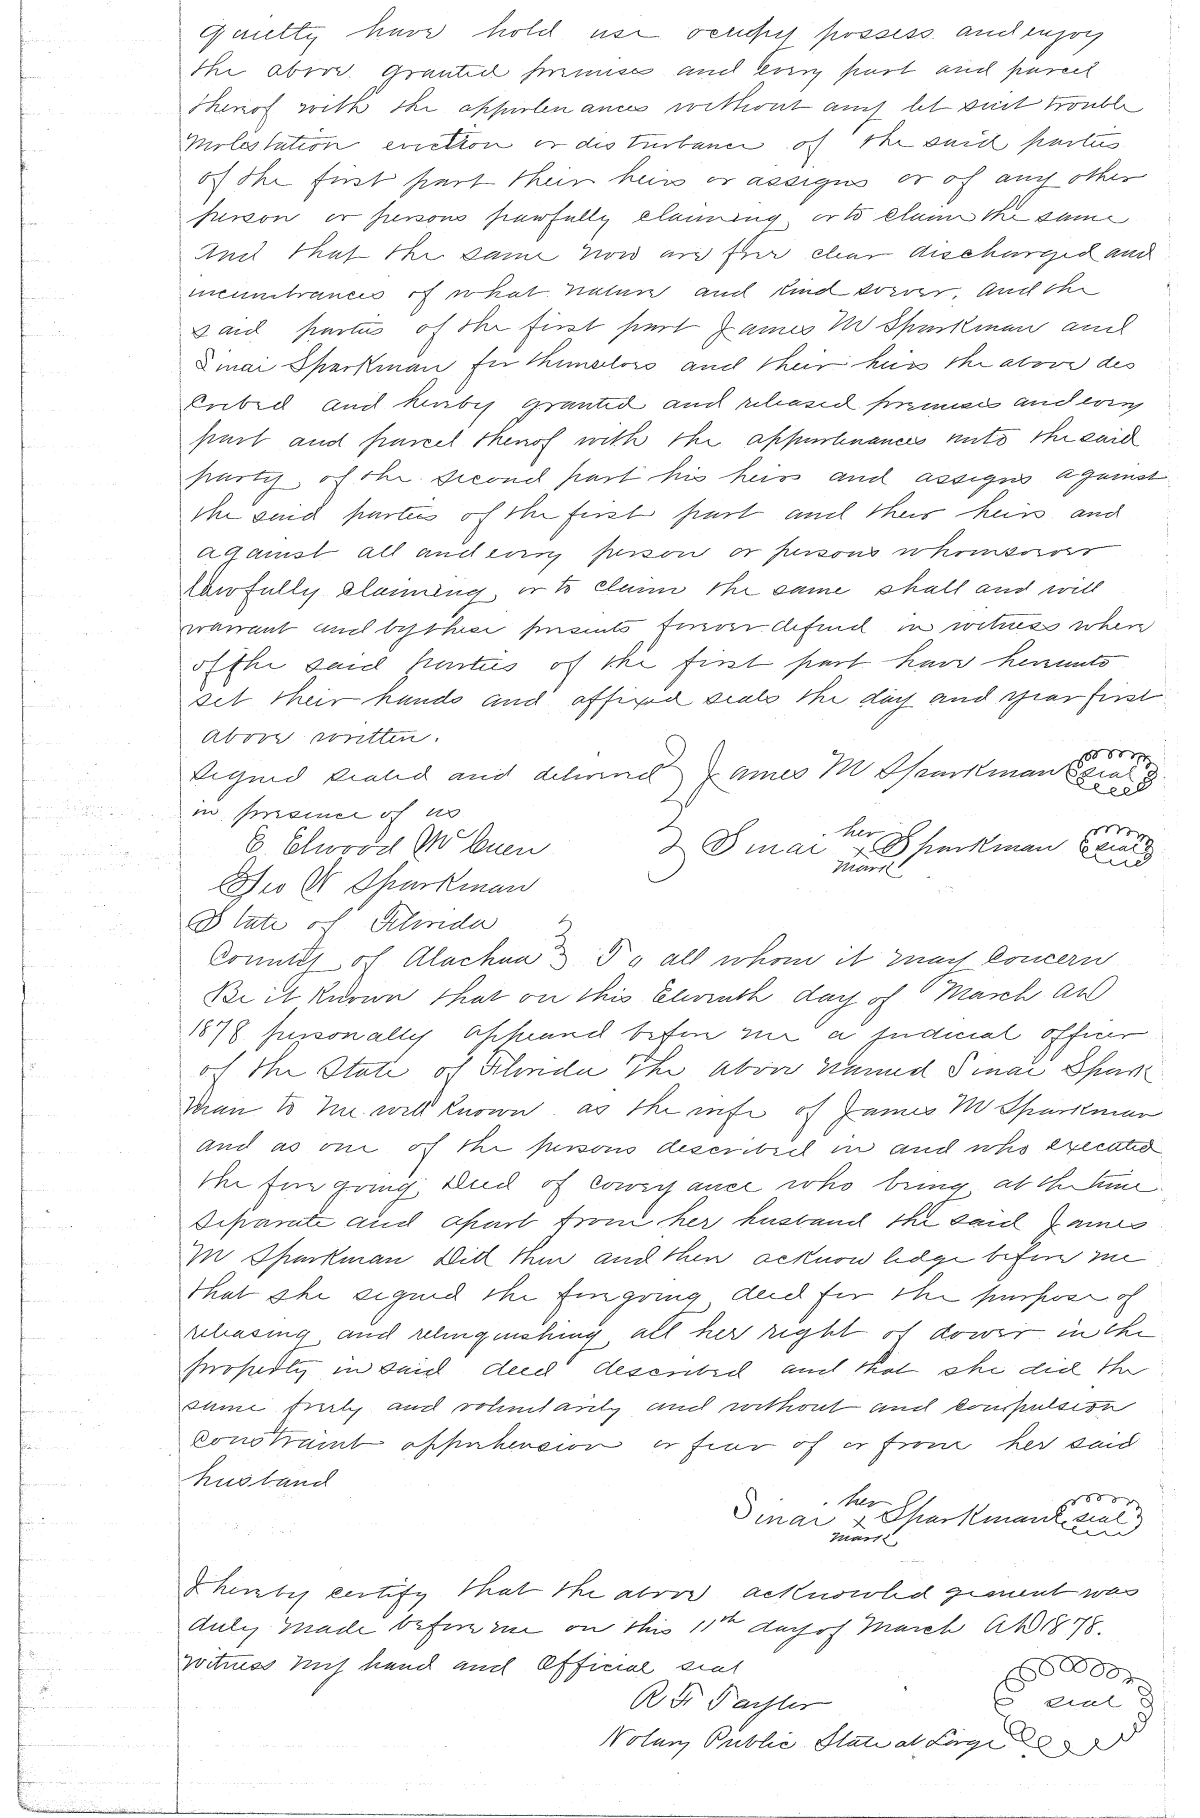 quietly have hold use occupy possess and enjoy
the above granted premises and every part and parcel
thereof with the appurtenances without any let suit trouble
molestation eviction or disturbance of the said parties
of the first part their heirs or assigns or of any other
person or persons lawfully claiming or to claim the same
And that the same now are free clear discharged and
incumbrances of what nature and kind soever. And the
said parties of the first part James M Sparkman and
Sinai Sparkman for themselves and their heirs the above des
cribed and hereby granted and released premises and every
part and parcel thereof with the appurtenances unto the said
party of the second part his heirs and assigns against
the said parties of the first part and their heirs and
against all and every person or persons whomsoever
lawfully claiming, or to claim the same shall and will
warrant and by these presents forever defend in witness where
of the said parties of the first part have hereunto
set their hands and affixed seals the day and year first
above written.
Signed sealed and delivered } James M Sparkman seal
in presence of us
E. Elwood McCuen } Sinai her x mark Sparkman seal
Geo W Sparkman
State of Florida
County of Alachua } To all whom it may Concern
Be it Known that on this Eleventh day of March AD
1878 personally appeared before me a judicial officer
of the State of Florida The above named Sinai Spark
man to me well known as the wife of James M Sparkman
and as one of the persons described in and who executed
the fore going Deed of conveyance who being at the time
separate and apart from her husband the said James
M Sparkman Did then and then acknow ledge before me
that she signed the foregoing deed for the purpose of
releasing and relinquishing all her right of dower in the
property in said deed described and that she did the
same freely and voluntarily and without and compulsion
constraint apprehension or fear of or from her said
husband
Sinai her x mark Sparkman seal
I hereby certify that the above acknowled gement was
duly made before me on this 11th day of March AD 1878.
witness my hand and Official seal
R F Taylor seal
Notary Public State at Large